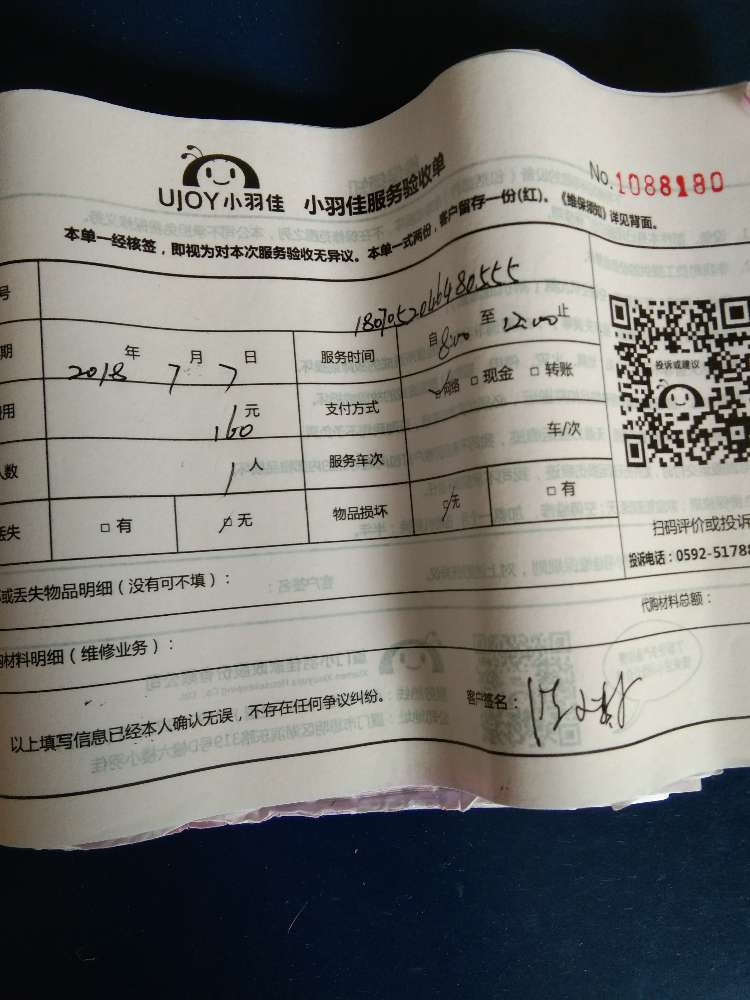 UJOY小羽佳 小羽佳服务验收单 No.1088180
本单一经核签，即视为对本次服务验收无异议。本单一式两份，客户留存一份(红)。《维保须知》详见背面。
号 1807052046480555
期 2018 年 7 月 7 日 服务时间 自 8:00 至 12:00 止
用 160 元 支付方式 网络 □ 现金 □ 转账
人数 1 人 服务车次 车/次
丢失 □ 有 □ 无 物品损坏 □ 无 □ 有
投诉或建议
扫码评价或投诉
投诉电话：0592-51788
或丢失物品明细（没有可不填）：
材料明细（维修业务）： 代购材料总额：
以上填写信息已经本人确认无误，不存在任何争议纠纷。 客户签名：